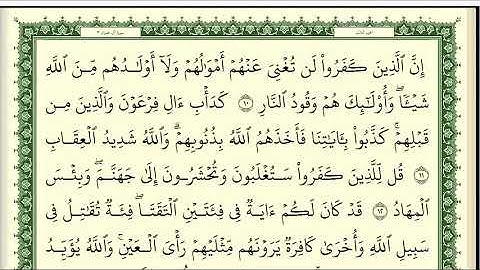 إِنَّ ٱلَّذِينَ كَفَرُوا۟ لَن تُغْنِىَ عَنْهُمْ أَمْوَٰلُهُمْ وَلَآ أَوْلَـٰدُهُم مِّنَ ٱللَّهِ
شَيْـًٔا ۖ وَأُو۟لَـٰٓئِكَ هُمْ وَقُودُ ٱلنَّارِ ١٠ كَدَأْبِ ءَالِ فِرْعَوْنَ وَٱلَّذِينَ مِن
قَبْلِهِمْ ۚ كَذَّبُوا۟ بِـَٔايَـٰتِنَا فَأَخَذَهُمُ ٱللَّهُ بِذُنُوبِهِمْ ۗ وَٱللَّهُ شَدِيدُ ٱلْعِقَابِ
١١ قُل لِّلَّذِينَ كَفَرُوا۟ سَتُغْلَبُونَ وَتُحْشَرُونَ إِلَىٰ جَهَنَّمَ ۚ وَبِئْسَ
ٱلْمِهَادُ ١٢ قَدْ كَانَ لَكُمْ ءَايَةٌ فِى فِئَتَيْنِ ٱلْتَقَتَا ۖ فِئَةٌ تُقَـٰتِلُ فِى
سَبِيلِ ٱللَّهِ وَأُخْرَىٰ كَافِرَةٌ يَرَوْنَهُم مِّثْلَيْهِمْ رَأْىَ ٱلْعَيْنِ ۚ وَٱللَّهُ يُؤَيِّدُ